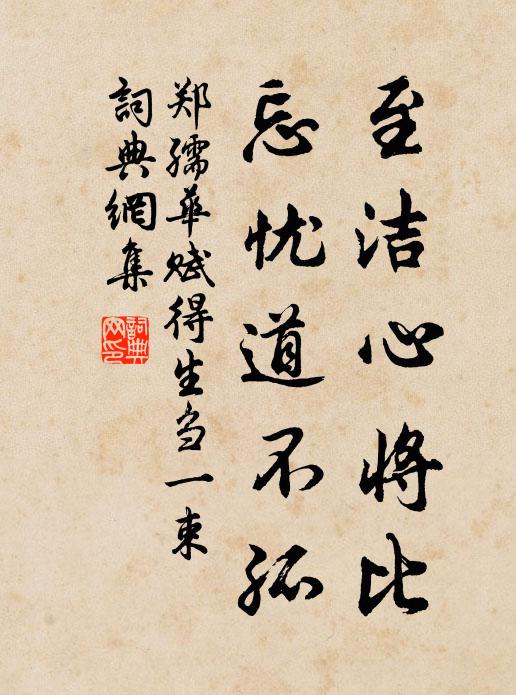 至洁心将比
忘忧道不孤
郑孺华赋得生刍一束
詞典網集
詞典网印